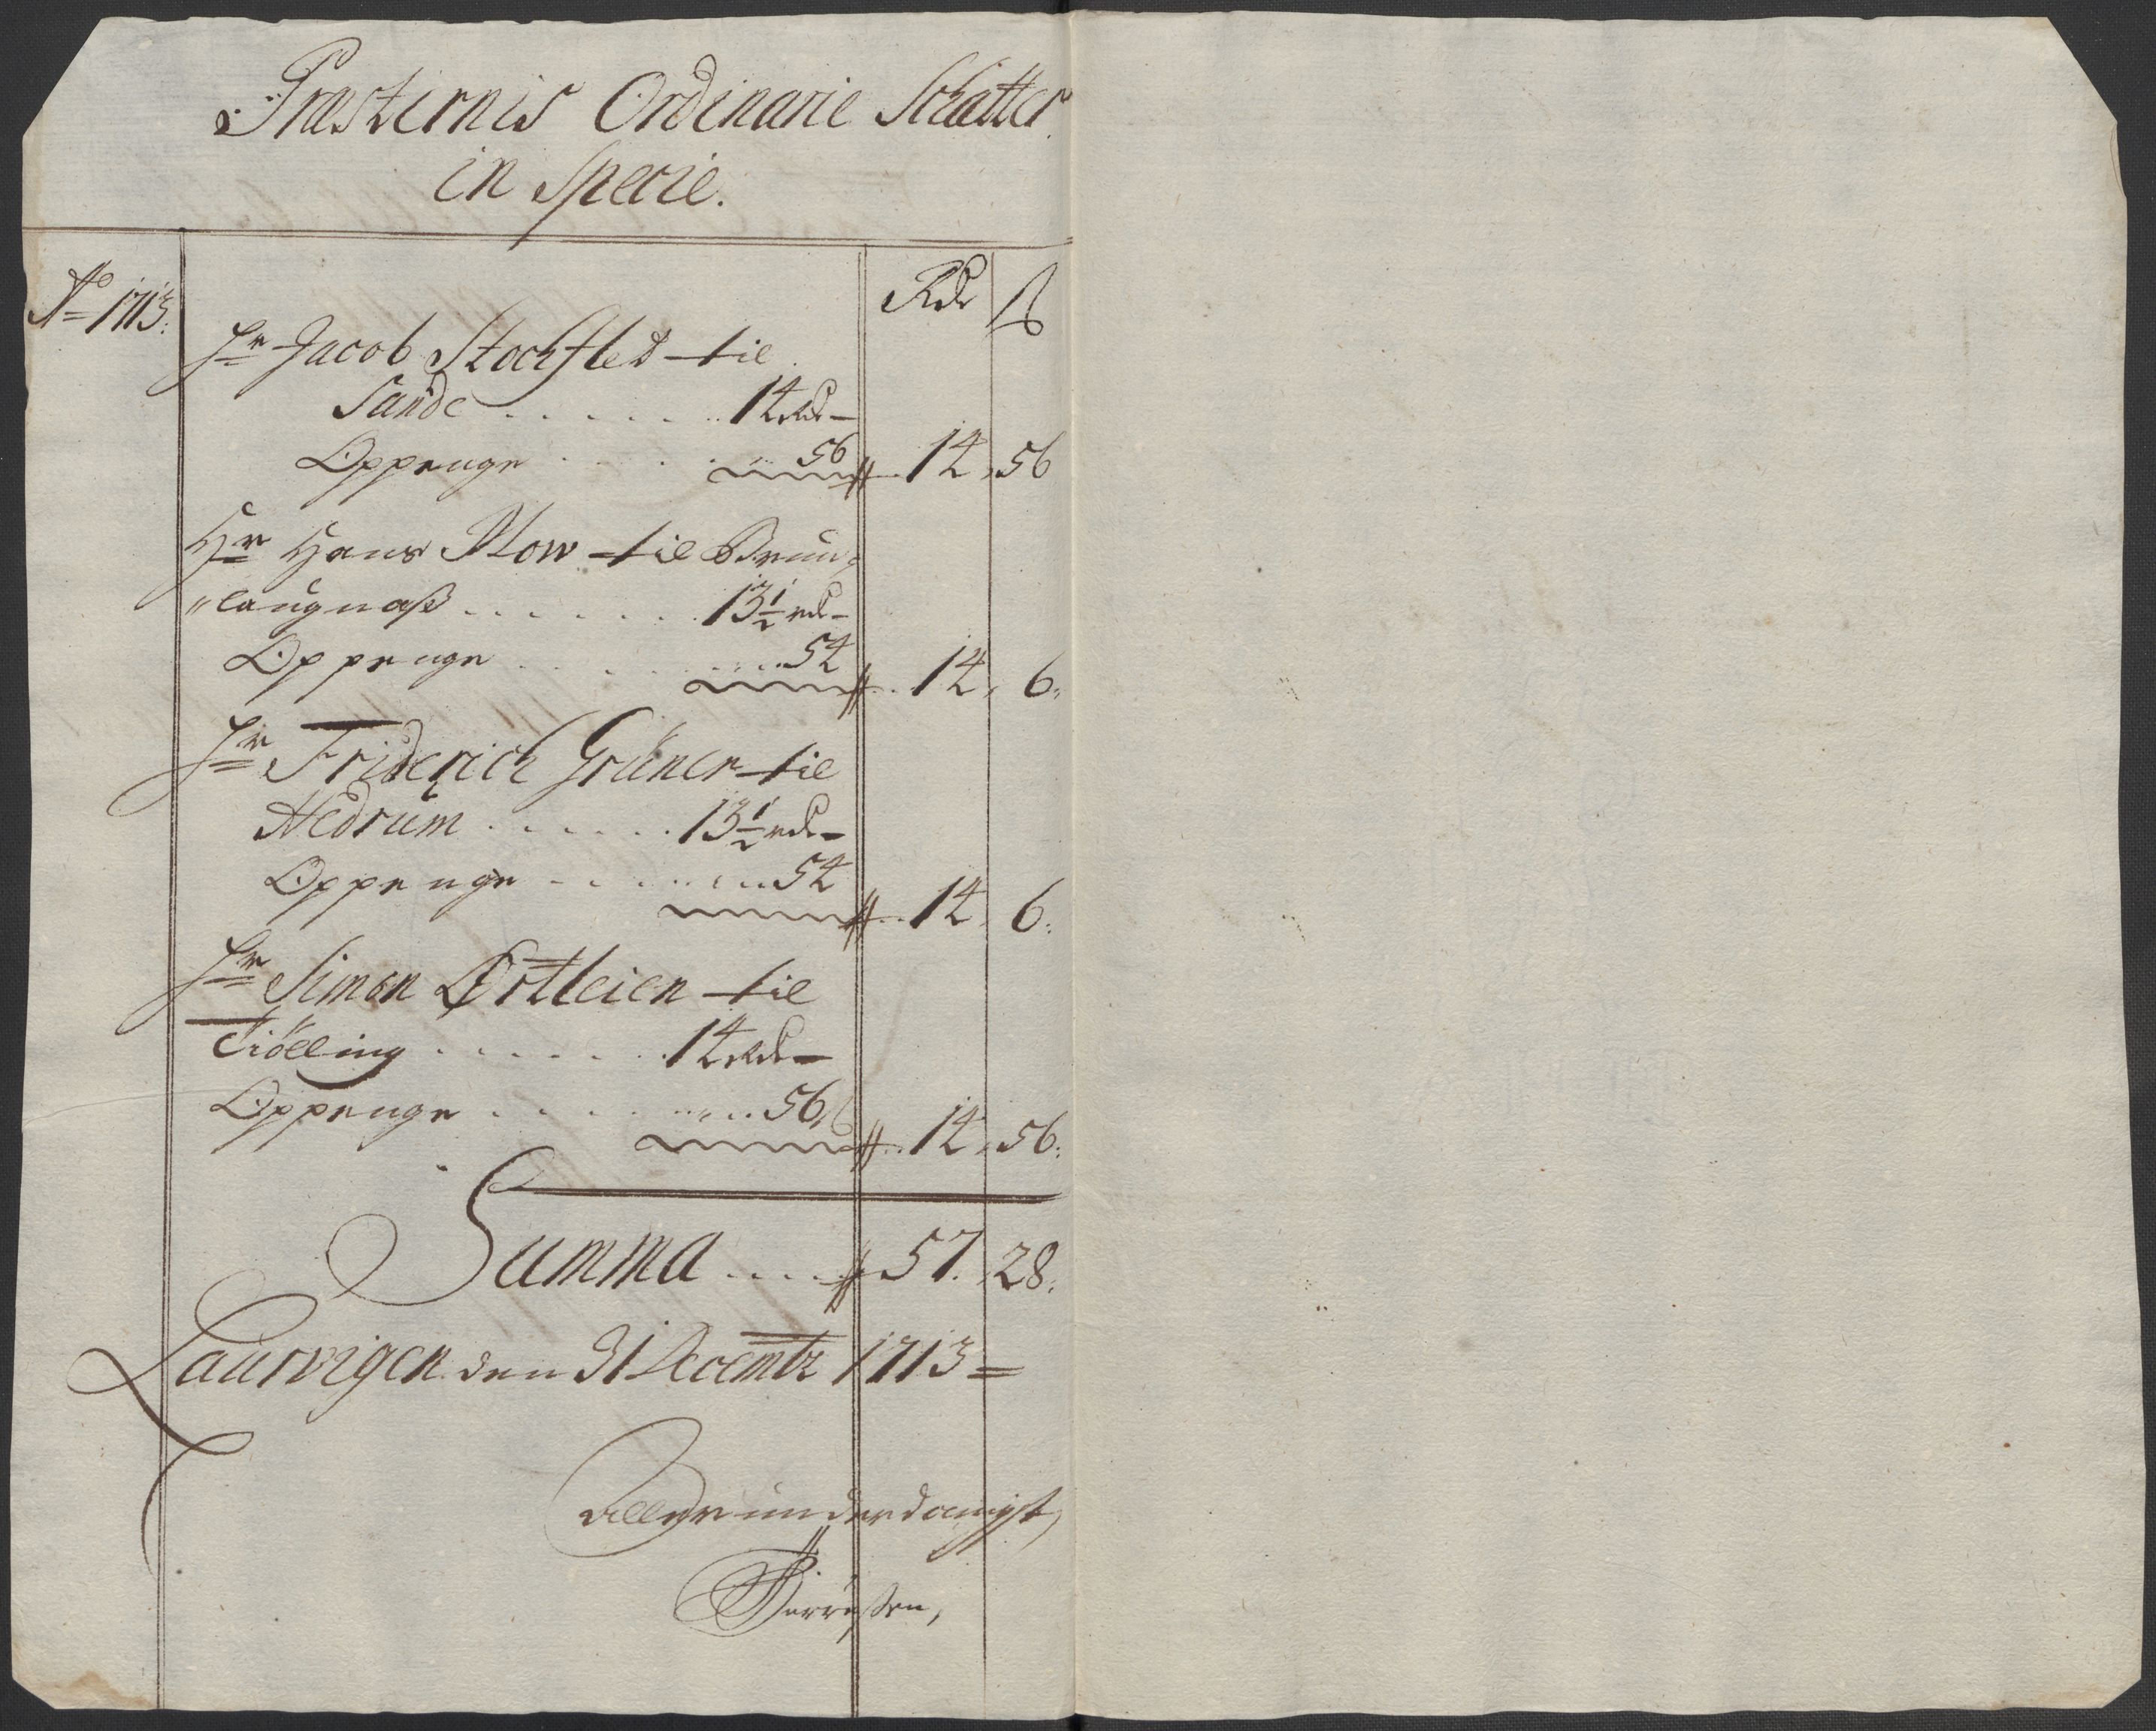 Præsternis Ordinarie Schatter
in Specie.
Rdr ß
Ao 1713.
Hr Jacob Stochflet til
Sande . . . . . . 14 Rdr
Oppenge . . . . 56 14 56
Hr Hans Mow til Brun
"laugnæß . . . . . . 13½ rdr
Oppenge . . . . 54 14 6
Hr Friderich Grüner til
Hedrum . . . . . . 13½ rdr
Oppenge . . . . 54 14 6
Hr Simon Örtleien til
Tiölling . . . . . . 14 Rdr
Oppenge . . . . 56 ß 14 56
Summa . . . . 57. 28.
Laurvigen den 31 Decembr 1713
Allerunderdanigst